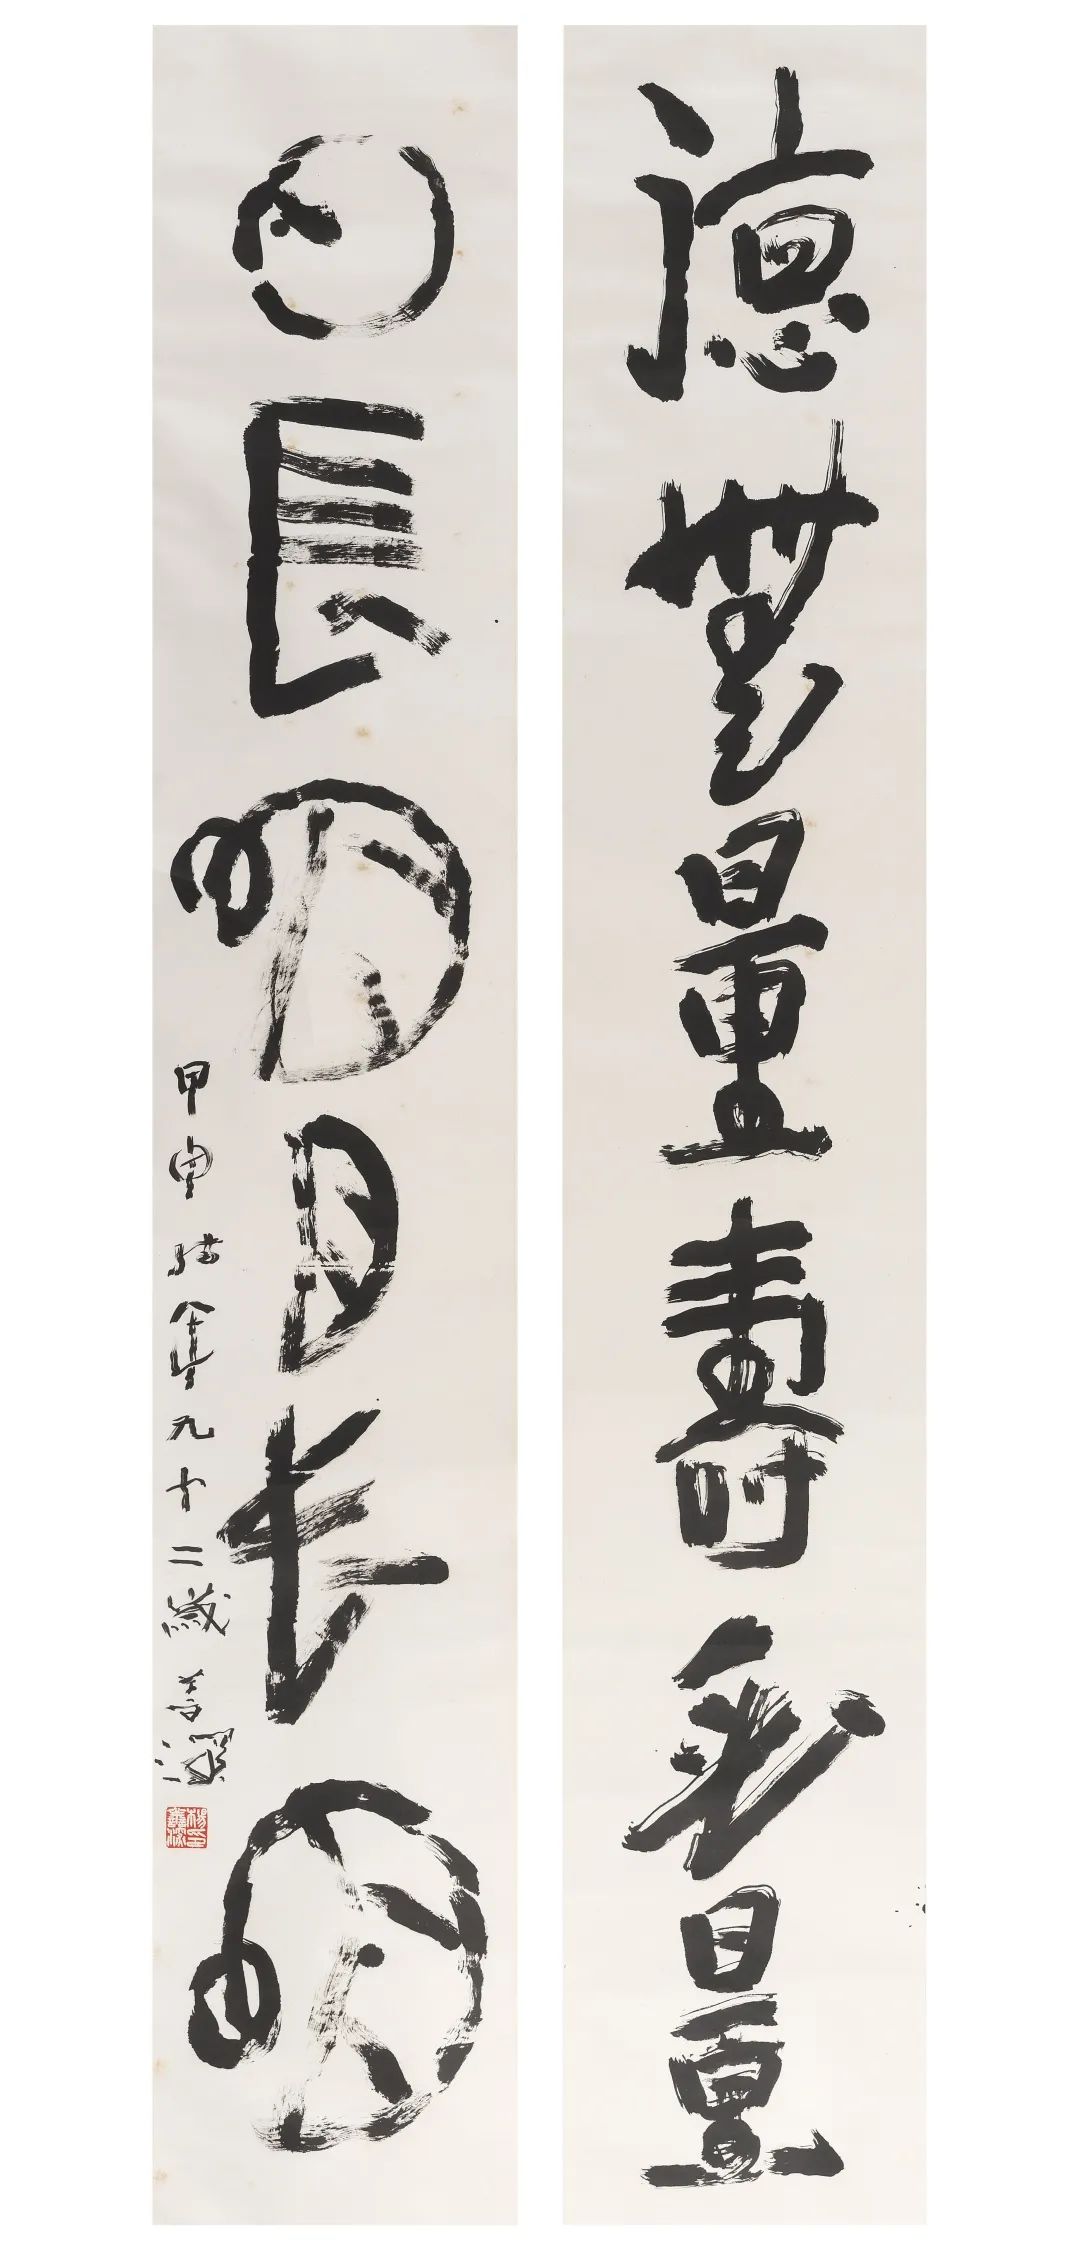 德無量壽無量
日長明月長明
甲申年九十二歲善深
楊善深印